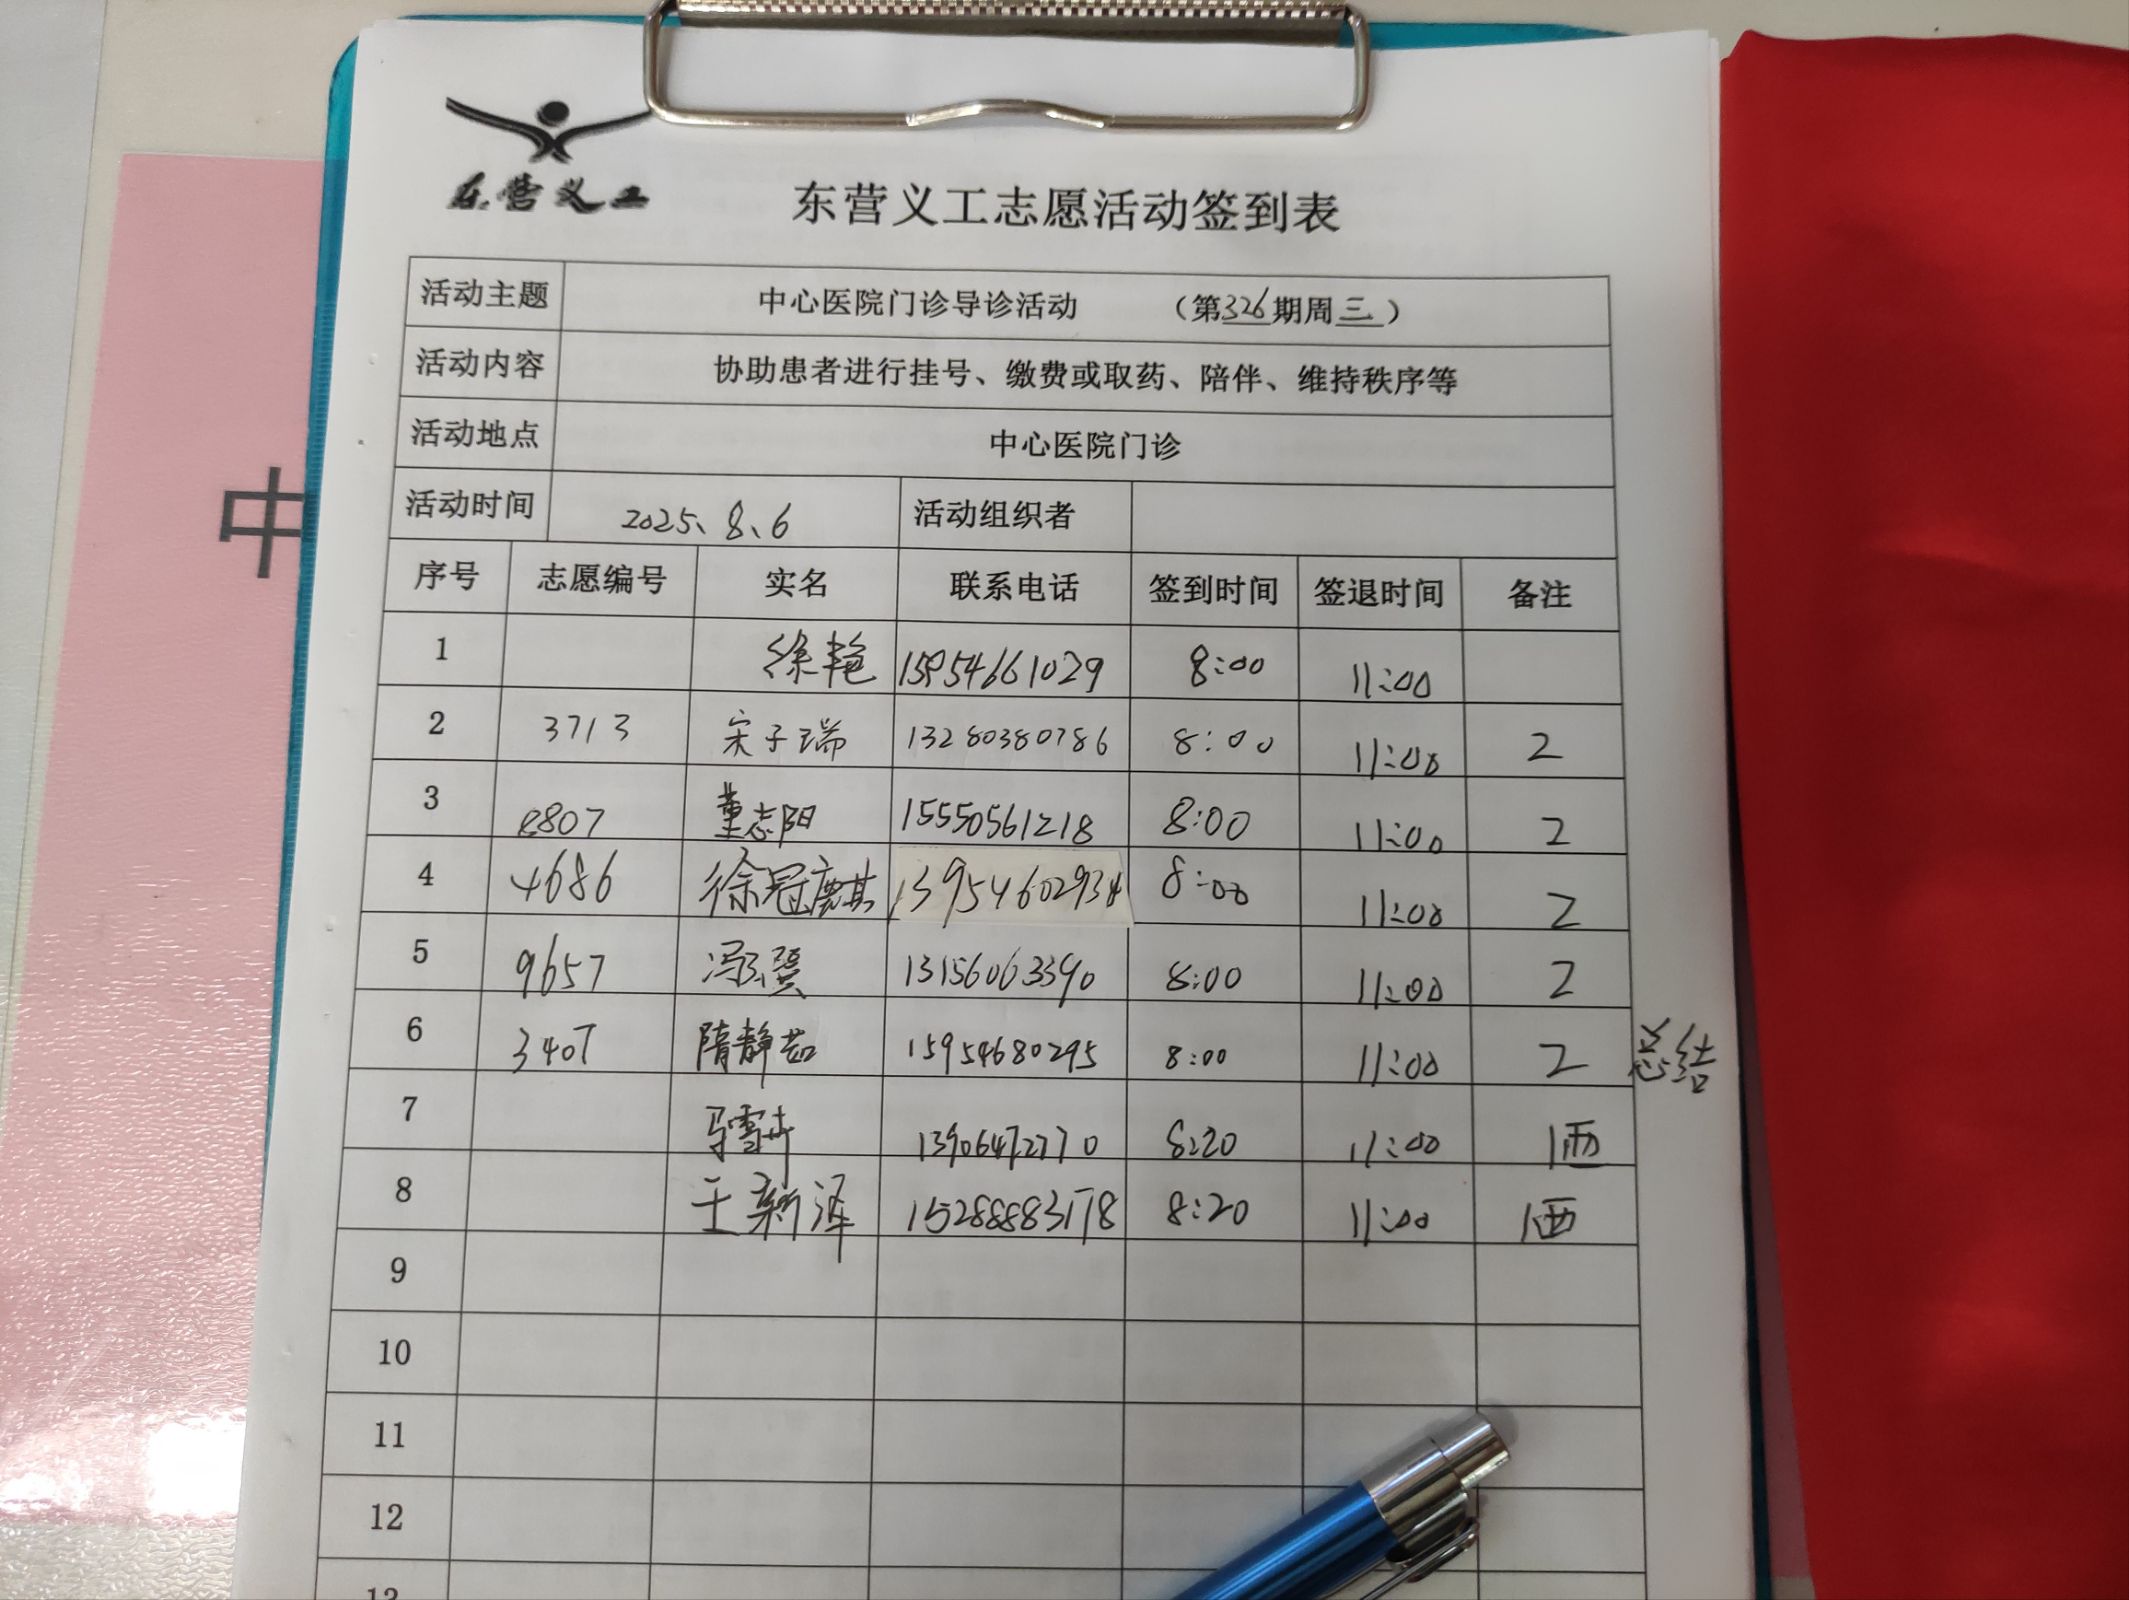 东营义工
东营义工志愿活动签到表
活动主题 中心医院门诊导诊活动 （第326期周三）
活动内容 协助患者进行挂号、缴费或取药、陪伴、维持秩序等
活动地点 中心医院门诊
活动时间 2025、8、6 活动组织者
序号 志愿编号 实名 联系电话 签到时间 签退时间 备注
1 徐艳 15954661029 8:00 11:00
2 3713 宋子瑞 13280380786 8:00 11:00 2
3 8807 董志阳 15550561218 8:00 11:00 2
4 4686 徐冠麒 13954602934 8:00 11:00 2
5 9657 13156063390 8:00 11:00 2
6 3407 隋静茹 15954680295 8:00 11:00 2 总结
7 13906472770 8:20 11:00 1西
8 王新泽 15288883178 8:20 11:00 1西
9
10
11
12
13
中